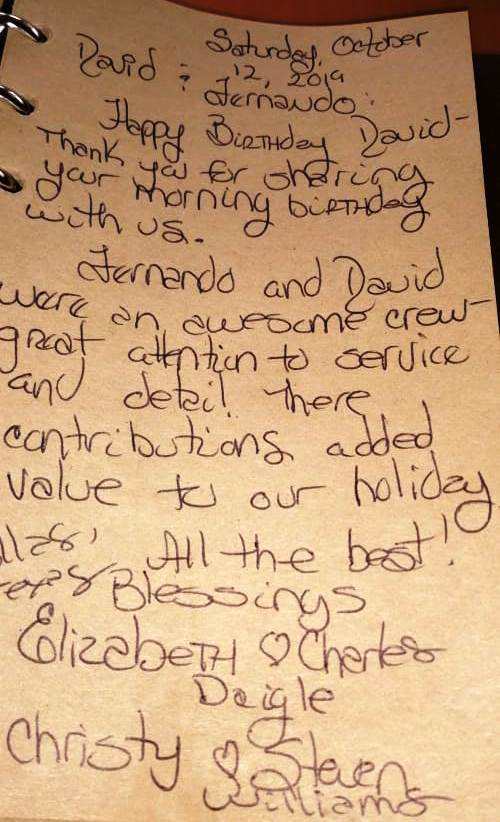 Saturday, October
12, 2019
David & Fernando:
Happy Birthday David-
Thank you for sharing
your morning birthday
with us.
Fernando and David
were an awesome crew-
great attention to service
and detail there
contributions added
value to our holiday
All the best!
Blessings
Elizabeth ♡ Charles
Daigle
Christy & Steven
Williams